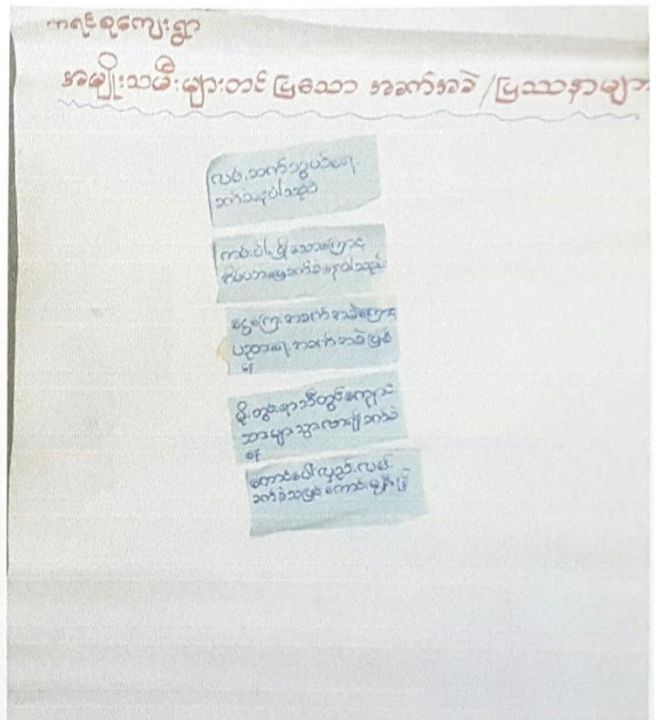 ကရင်စုကျေးရွာ
အမျိုးသမီးများတင်ပြသော အခက်အခဲ/ပြဿနာများ
လမ်းဆက်သွယ်ရေး
ခက်ခဲနေပါသည်
ကမ်းပါးပြိုသောကြောင့်
ခက်ခဲနေပါသည်
ငွေကြေးအခက်အခဲကြောင့်
ပညာရေးအခက်အခဲဖြစ်
နေ
မိုးတွင်းရာသီတွင်ကျောင်း
သားများသွားလာဖို့ခက်ခဲ
နေ
လမ်း
ခက်ခဲသဖြင့်ကောင်းမွန်ဖို့